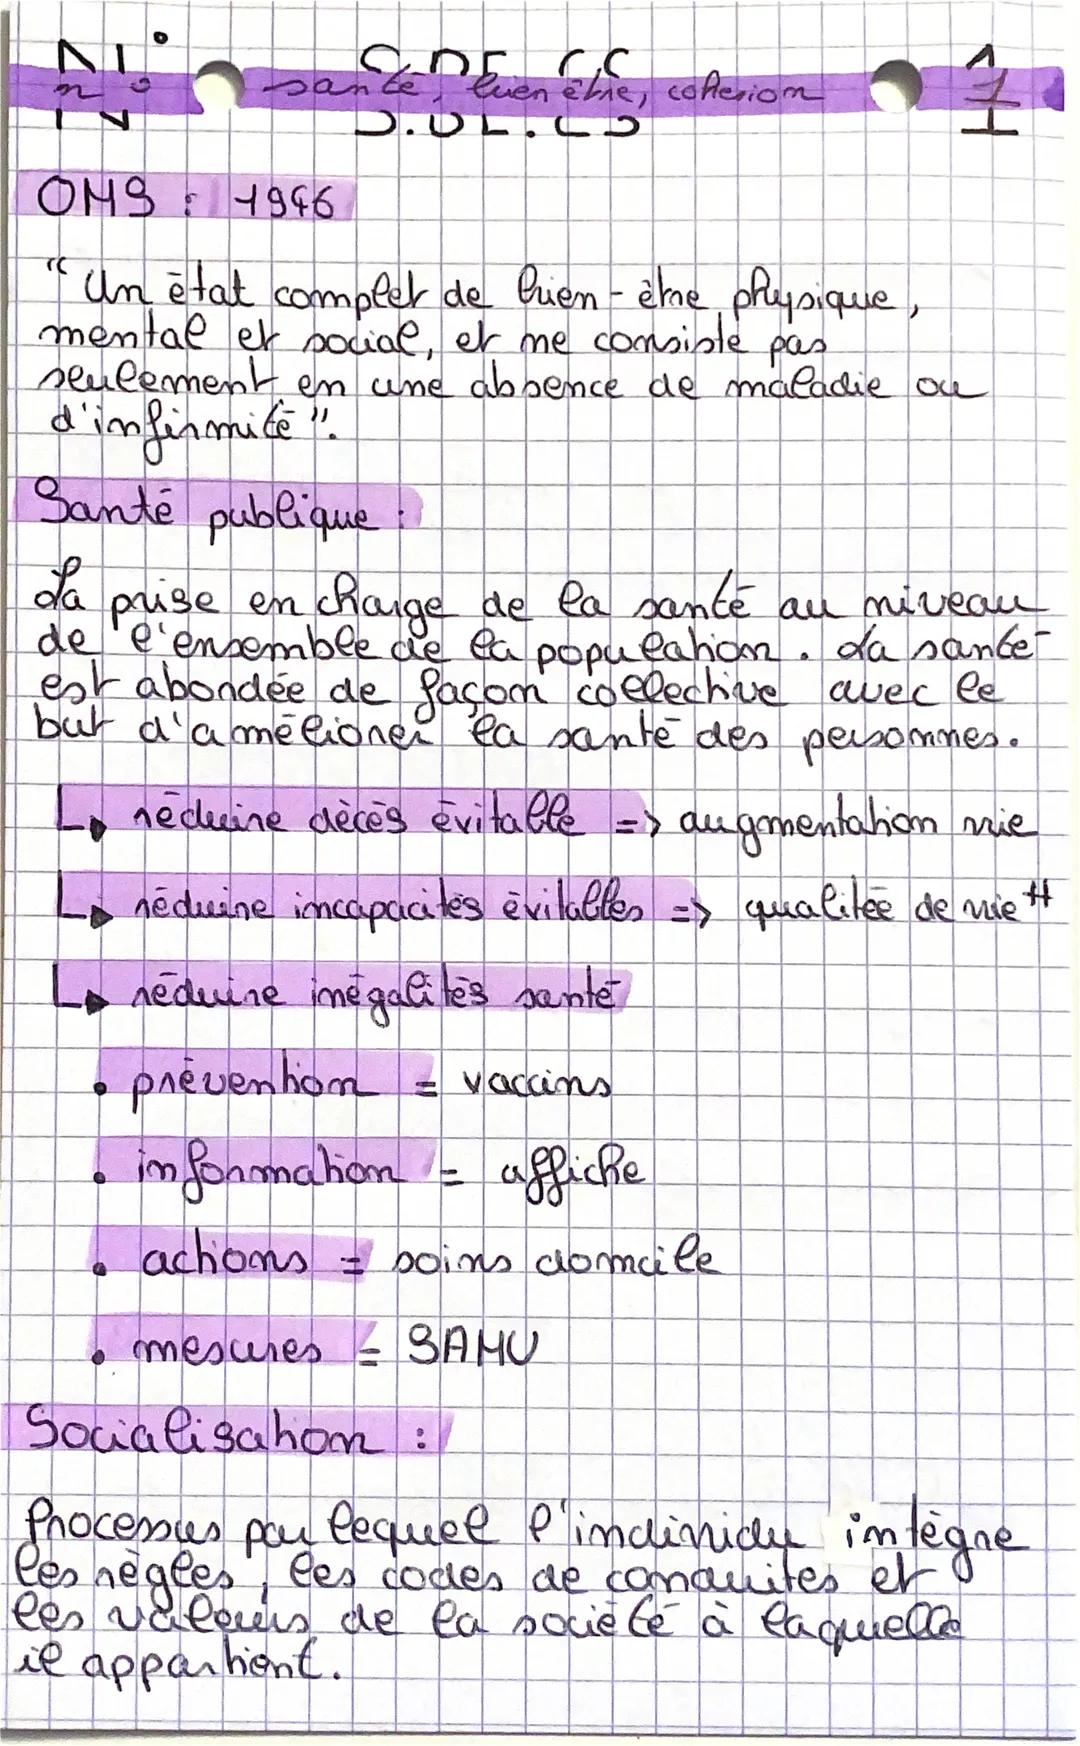 N° S.DE.CS 1
n° santé, bien être, cohésion 1
OMS : 1946
"Un état complet de bien-être physique,
mental et social, et ne consiste pas
seulement en une absence de maladie ou
d'infirmité".
Santé publique :
La prise en charge de la santé au niveau
de l'ensemble de la population. La santé
est abondée de façon collective avec le
but d'améliorer la santé des personnes.
↳ réduire décès évitable => augmentation vie
↳ réduire incapacités évitables => qualitée de vie ++
↳ réduire inégalités santé
• prévention = vaccins
• information = affiche
• actions = soins domcile
• mesures = SAMU
Socialisation :
Processus par lequel l'individu intègre
les règles, les codes de conduites et
les valeurs de la société à laquelle
il appartient.